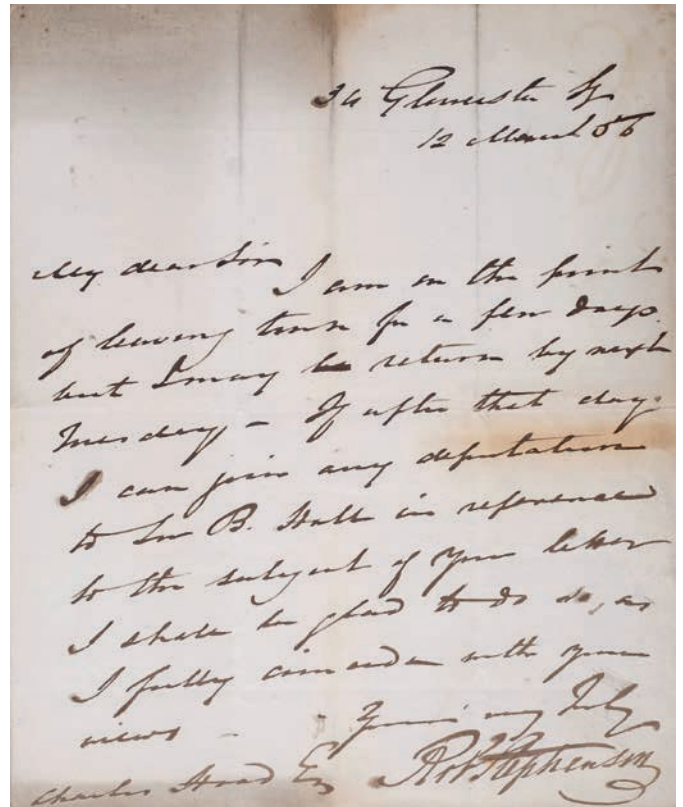 34 Gloucester Sq
12 March 56
My dear Sir I am on the point
of leaving town for a few days
but I may be return by next
Tuesday – If after that day
I can join any deputation
to Sir B. Hall in reference
to the subject of your letter
I shall be glad to do so, as
I fully coincide with your
views – Yours very truly
Charles Esq Rob Stephenson